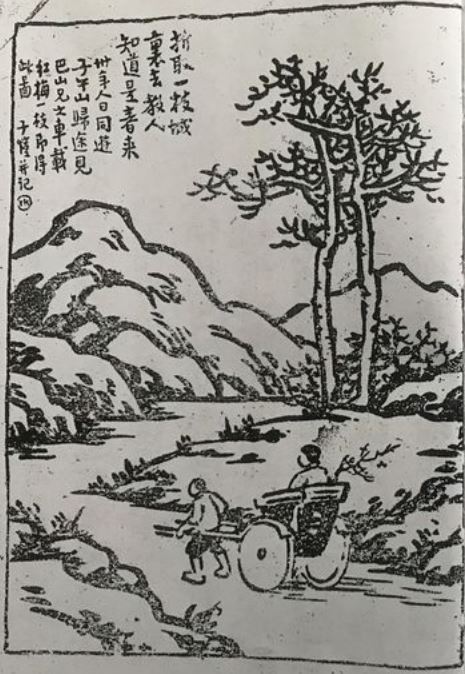 折取一枝城
裏去教人
知道是春来
卅年人日同遊
子午山歸途見
巴山兄之車載
紅梅一枝即得
此圖 子愷并記